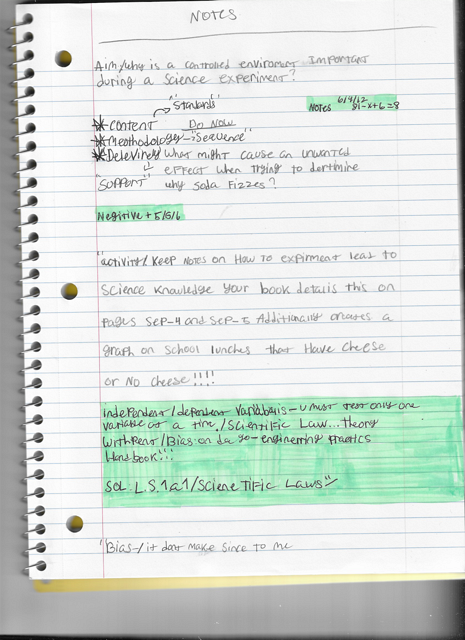 NOTES
Aim/why is a controlled enviroment IMPORTANT
during a science experiment?
"Standards"
6/9/12
Notes
=8
*Content Do Now
*Methodology-"Sequence"
*Delevirey What might cause an unwanted
effect when trying to dertmine
"SUPPORT" why soda Fizzes?
Negitive + 5/6/6
"activity/ Keep Notes on How to expirment lead to
Science Knowledge your book details this on
pages SEP-4 and SEP-5 Additionally creates a
graph on School lunches that Have cheese
or No cheese!!!!
independent/dependent Variables - u must test only one
variable at a time/Scientific Law...theory
Withrent/Bias on da go-engineering practics
Handbook!!!
SOL: L.S.1a1/Science Tific Laws
"Bias-/it dont make since to me